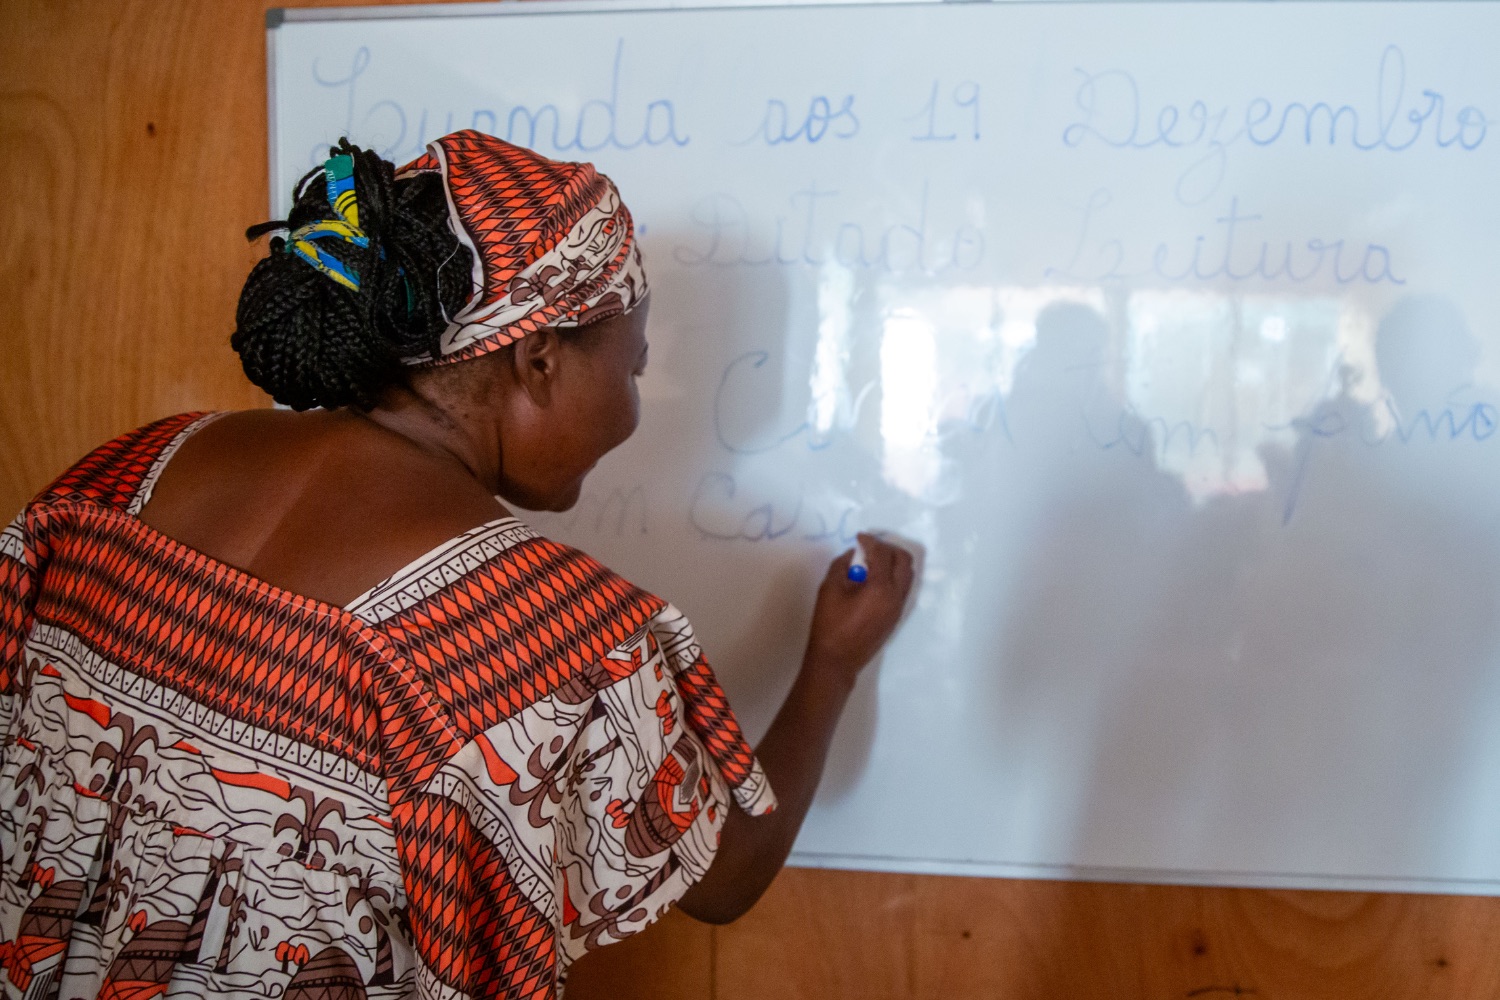 Luanda aos 19 Dezembro
Ditado Leitura
tem
em Casa